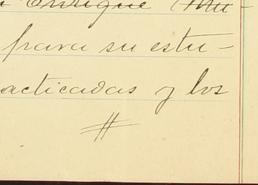 Enrique Mu-
para su estu-
acticadas y los
#